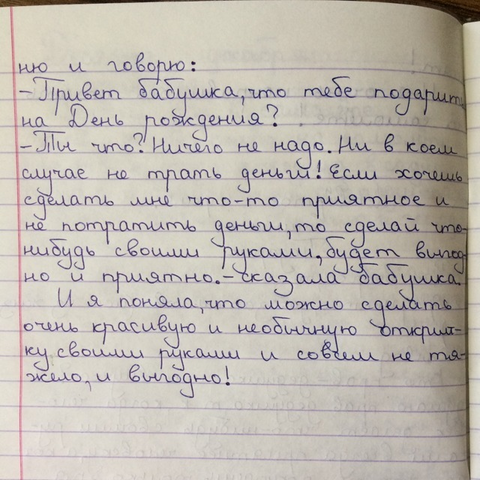 ню и говорю:
-Привет бабушка, что тебе подарить
на День рождения?
-Ты что? Ничего не надо. Ни в коем
случае не трать деньги! Если хочешь
сделать мне что-то приятное и
не потратить деньги, то сделай что-
нибудь своими руками, будет выгод-
но и приятно.-сказала бабушка.
И я поняла, что можно сделать
очень красивую и необычную открыт-
ку своими руками и совсем не тя-
жело, и выгодно!